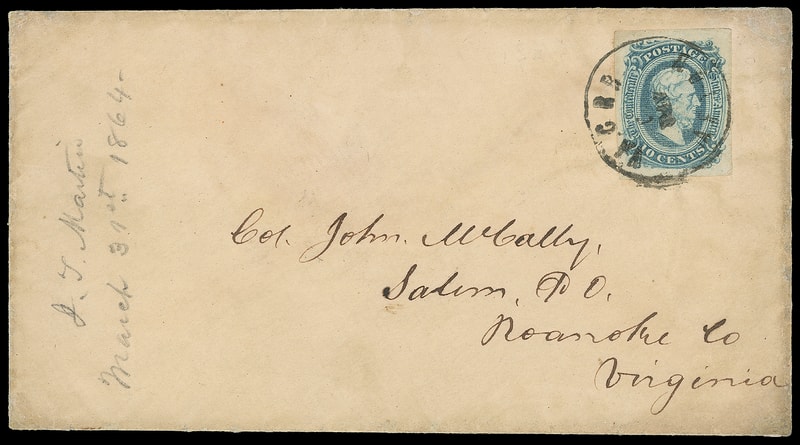 J. T. Martin
March 31st 1864-
POSTAGE
CENTS
APR
VA
Col. John. McCally,
Salem, P.O.
Roanoke Co
Virginia